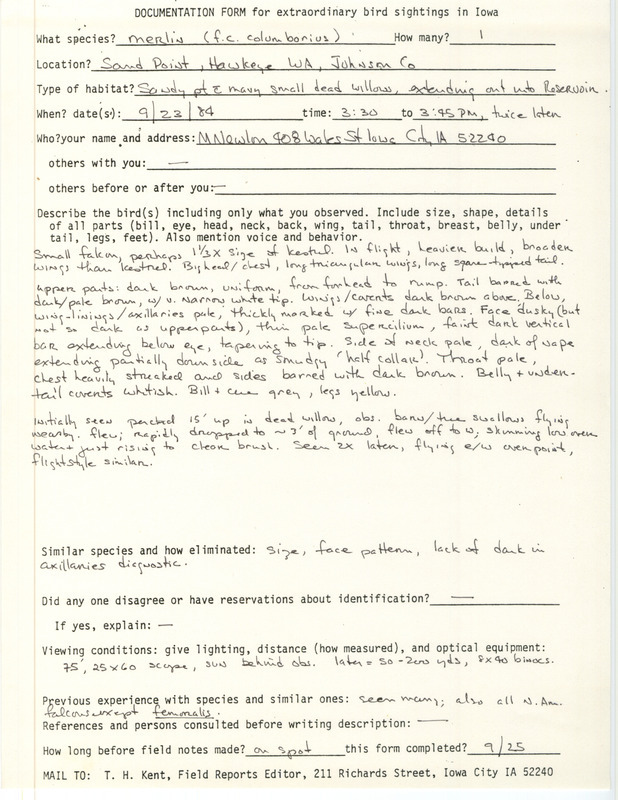 DOCUMENTATION FORM for extraordinary bird sightings in Iowa
What species? merlin (f.c. columbarius) How many? 1
Location? Sand Point, Hawkeye WA, Johnson Co
Type of habitat? Sandy pt & many small dead willows, extending out into Reservoir.
When? date(s): 9/23/84 time: 3:30 to 3:45 PM, twice later
Who? your name and address: M Newlon 408 Wales St Iowa City, IA 52240
others with you: —
others before or after you: —
Describe the bird(s) including only what you observed. Include size, shape, details
of all parts (bill, eye, head, neck, back, wing, tail, throat, breast, belly, under
tail, legs, feet). Also mention voice and behavior.
Small falcon, perhaps 1 1/3 x size of kestrel. In flight, heavier build, broader
wings than kestrel. Big head/chest, long triangular wings, long square-tipped tail.
upper parts: dark brown, uniform, from forhead to rump. Tail barred with
dark/pale brown, w/ v. narrow white tip. Wings/coverts dark brown above. Below,
wing-linings/axillaries pale, thickly marked w/ fine dark bars. Face dusky (but
not so dark as upperparts), thin pale supercilium, faint dark vertical
bar extending below eye, tapering to tip. Side of neck pale, dark of nape
extending partially down side as smudgy "half collar". Throat pale,
chest heavily streaked and sides barred with dark brown. Belly + under-
tail coverts whitish. Bill + cere grey, legs yellow.
Initially seen perched 15' up in dead willow, obs. barn/tree swallows flying
nearby. flew; rapidly dropped to ~3' of ground, flew off to W, skimming low over
water just rising to clear brush. Seen 2X later, flying e/w over point,
flightstyle similar.
Similar species and how eliminated: size, face pattern, lack of dark in
axillaries diagnostic.
Did any one disagree or have reservations about identification? —
If yes, explain: —
Viewing conditions: give lighting, distance (how measured), and optical equipment:
75', 25x60 scope, sun behind obs. later = 50-200 yds, 8x40 binocs.
Previous experience with species and similar ones: seen many; also all N. Am.
falcons except femoralis.
References and persons consulted before writing description: —
How long before field notes made? on spot this form completed? 9/25
MAIL TO: T. H. Kent, Field Reports Editor, 211 Richards Street, Iowa City IA 52240